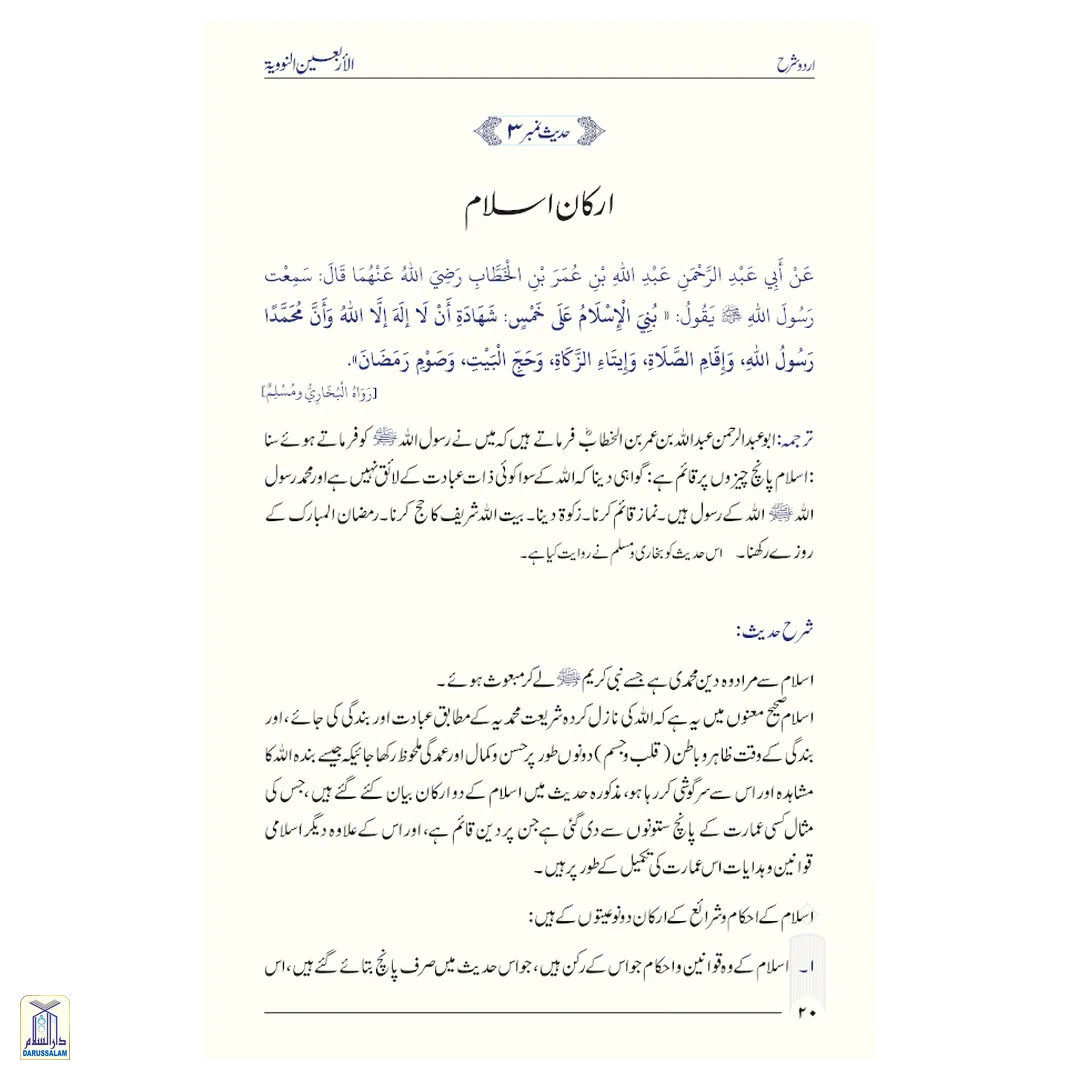 اردو شرح
الأربعین النوویة
حدیث نمبر ۳
ارکان اسلام
عَنْ أَبِي عَبْدِ الرَّحْمَنِ عَبْدِ اللهِ بْنِ عُمَرَ بْنِ الْخَطَّابِ رَضِيَ اللهُ عَنْهُمَا قَالَ: سَمِعْت
رَسُولَ اللهِ ﷺ يَقُولُ: « بُنِيَ الْإِسْلَامُ عَلَى خَمْسٍ: شَهَادَةِ أَنْ لَا إلَهَ إلَّا اللهُ وَأَنَّ مُحَمَّدًا
رَسُولُ اللهِ، وَإِقَامِ الصَّلَاةِ، وَإِيتَاءِ الزَّكَاةِ، وَحَجِّ الْبَيْتِ، وَصَوْمِ رَمَضَانَ».
[رَوَاهُ الْبُخَارِيُّ ومُسْلِمٌ]
ترجمہ: ابوعبدالرحمن عبداللہ بن عمر بن الخطابؓ فرماتے ہیں کہ میں نے رسول اللہ ﷺ کو فرماتے ہوئے سنا
:اسلام پانچ چیزوں پر قائم ہے: گواہی دینا کہ اللہ کے سوا کوئی ذات عبادت کے لائق نہیں ہے اور محمد رسول
اللہ ﷺ اللہ کے رسول ہیں۔ نماز قائم کرنا۔ زکوۃ دینا۔ بیت اللہ شریف کا حج کرنا۔ رمضان المبارک کے
روزے رکھنا۔ اس حدیث کو بخاری ومسلم نے روایت کیا ہے۔
شرح حدیث:
اسلام سے مراد وہ دین محمدی ہے جسے نبی کریم ﷺ لے کر مبعوث ہوئے۔
اسلام صحیح معنوں میں یہ ہے کہ اللہ کی نازل کردہ شریعت محمدیہ کے مطابق عبادت اور بندگی کی جائے، اور
بندگی کے وقت ظاہر و باطن (قلب وجسم) دونوں طور پر حسن وکمال اور عمدگی ملحوظ رکھا جائیکہ جیسے بندہ اللہ کا
مشاہدہ اور اس سے سرگوشی کر رہا ہو، مذکورہ حدیث میں اسلام کے دو ارکان بیان کئے گئے ہیں، جس کی
مثال کسی عمارت کے پانچ ستونوں سے دی گئی ہے جن پر دین قائم ہے، اور اس کے علاوہ دیگر اسلامی
قوانین وہدایات اس عمارت کی تکمیل کے طور پر ہیں۔
اسلام کے احکام وشرائع کے ارکان دو نوعیتوں کے ہیں:
۱۔ اسلام کے وہ قوانین واحکام جو اس کے رکن ہیں، جو اس حدیث میں صرف پانچ بتائے گئے ہیں، اس
۲۰
دارالسلام
DARUSSALAM